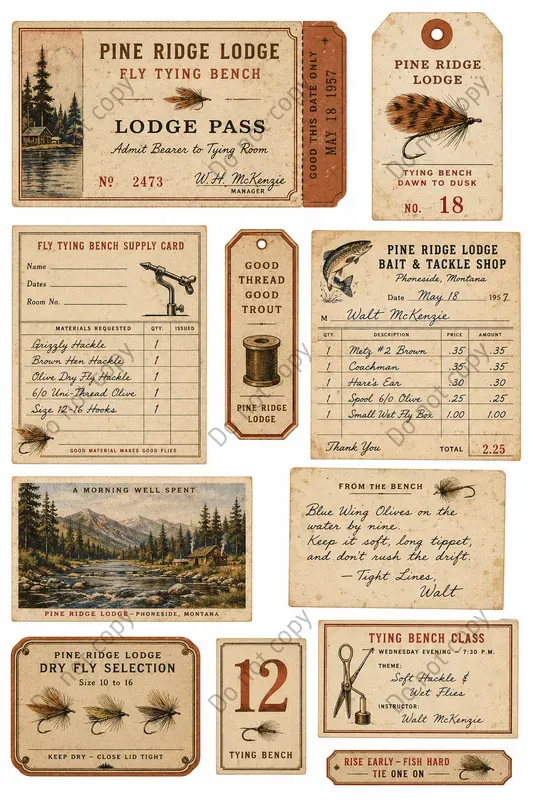 PINE RIDGE LODGE
FLY TYING BENCH
LODGE PASS
Admit Bearer to Tying Room
Nº 2473
W. H. McKenzie
MANAGER
GOOD THIS DATE ONLY
MAY 18 1957
PINE RIDGE
LODGE
TYING BENCH
DAWN TO DUSK
NO. 18
FLY TYING BENCH SUPPLY CARD
Name
Dates
Room No.
MATERIALS REQUESTED QTY. ISSUED
Grizzly Hackle 1
Brown Hen Hackle 1
Olive Dry Fly Hackle 1
6/0 Uni-Thread Olive 1
Size 12-16 Hooks 1
GOOD MATERIAL MAKES GOOD FLIES
GOOD
THREAD
GOOD
TROUT
PINE RIDGE
LODGE
PINE RIDGE LODGE
BAIT & TACKLE SHOP
Phoneside, Montana
Date May 18 1957
M Walt McKenzie
QTY. DESCRIPTION PRICE AMOUNT
1 Metz #2 Brown .35 .35
1 Coachman .35 .35
1 Hare's Ear .30 .30
1 Spool 6/0 Olive .25 .25
1 Small Wet Fly Box 1.00 1.00
Thank You TOTAL 2.25
A MORNING WELL SPENT
PINE RIDGE LODGE–PHONESIDE, MONTANA
FROM THE BENCH
Blue Wing Olives on the
water by nine.
Keep it soft, long tippet,
and don't rush the drift.
— Tight Lines,
Walt
PINE RIDGE LODGE
DRY FLY SELECTION
Size 10 to 16
KEEP DRY – CLOSE LID TIGHT
12
TYING BENCH
TYING BENCH CLASS
WEDNESDAY EVENING – 7:30 P.M.
THEME:
Soft Hackle &
Wet Flies
INSTRUCTOR:
Walt McKenzie
RISE EARLY–FISH HARD
TIE ONE ON
Do not copy
Do not copy
Do not copy
Do not copy
Do not copy
Do not copy
Do not copy
Do not copy
Do not copy
Do not copy
Do not copy
Do not copy